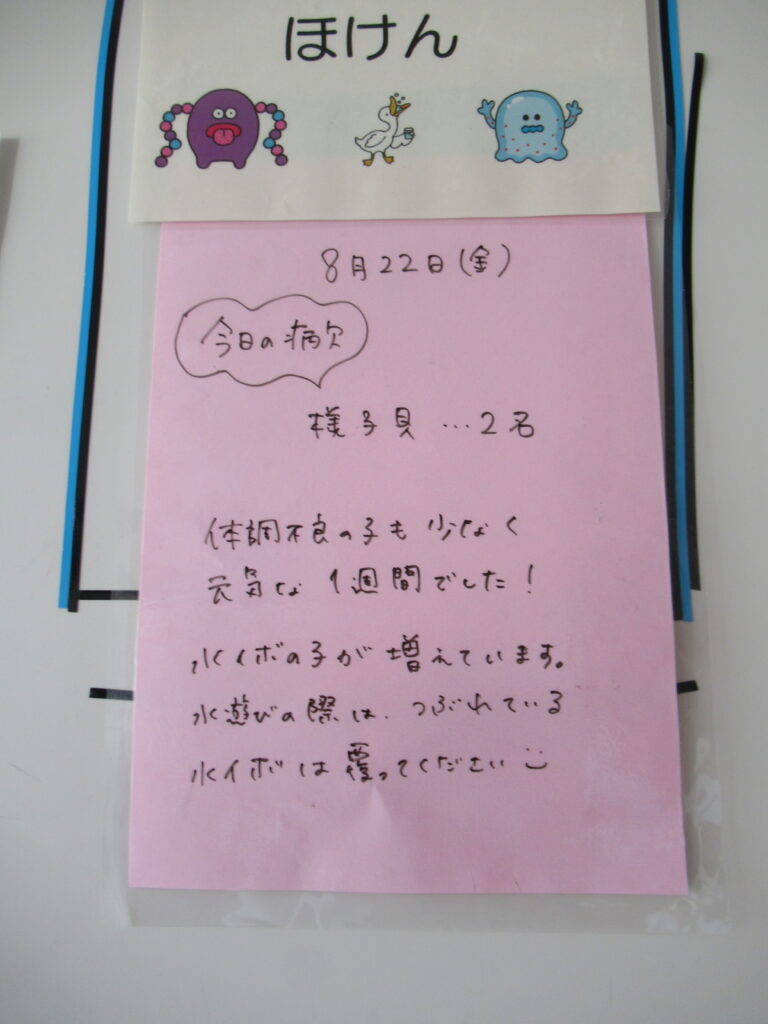 ほけん
8月22日(金)
今日の病欠
様子見…2名
体調不良の子も少なく
元気な1週間でした!
水イボの子が増えています。
水遊びの際は、つぶれている
水イボは覆ってください